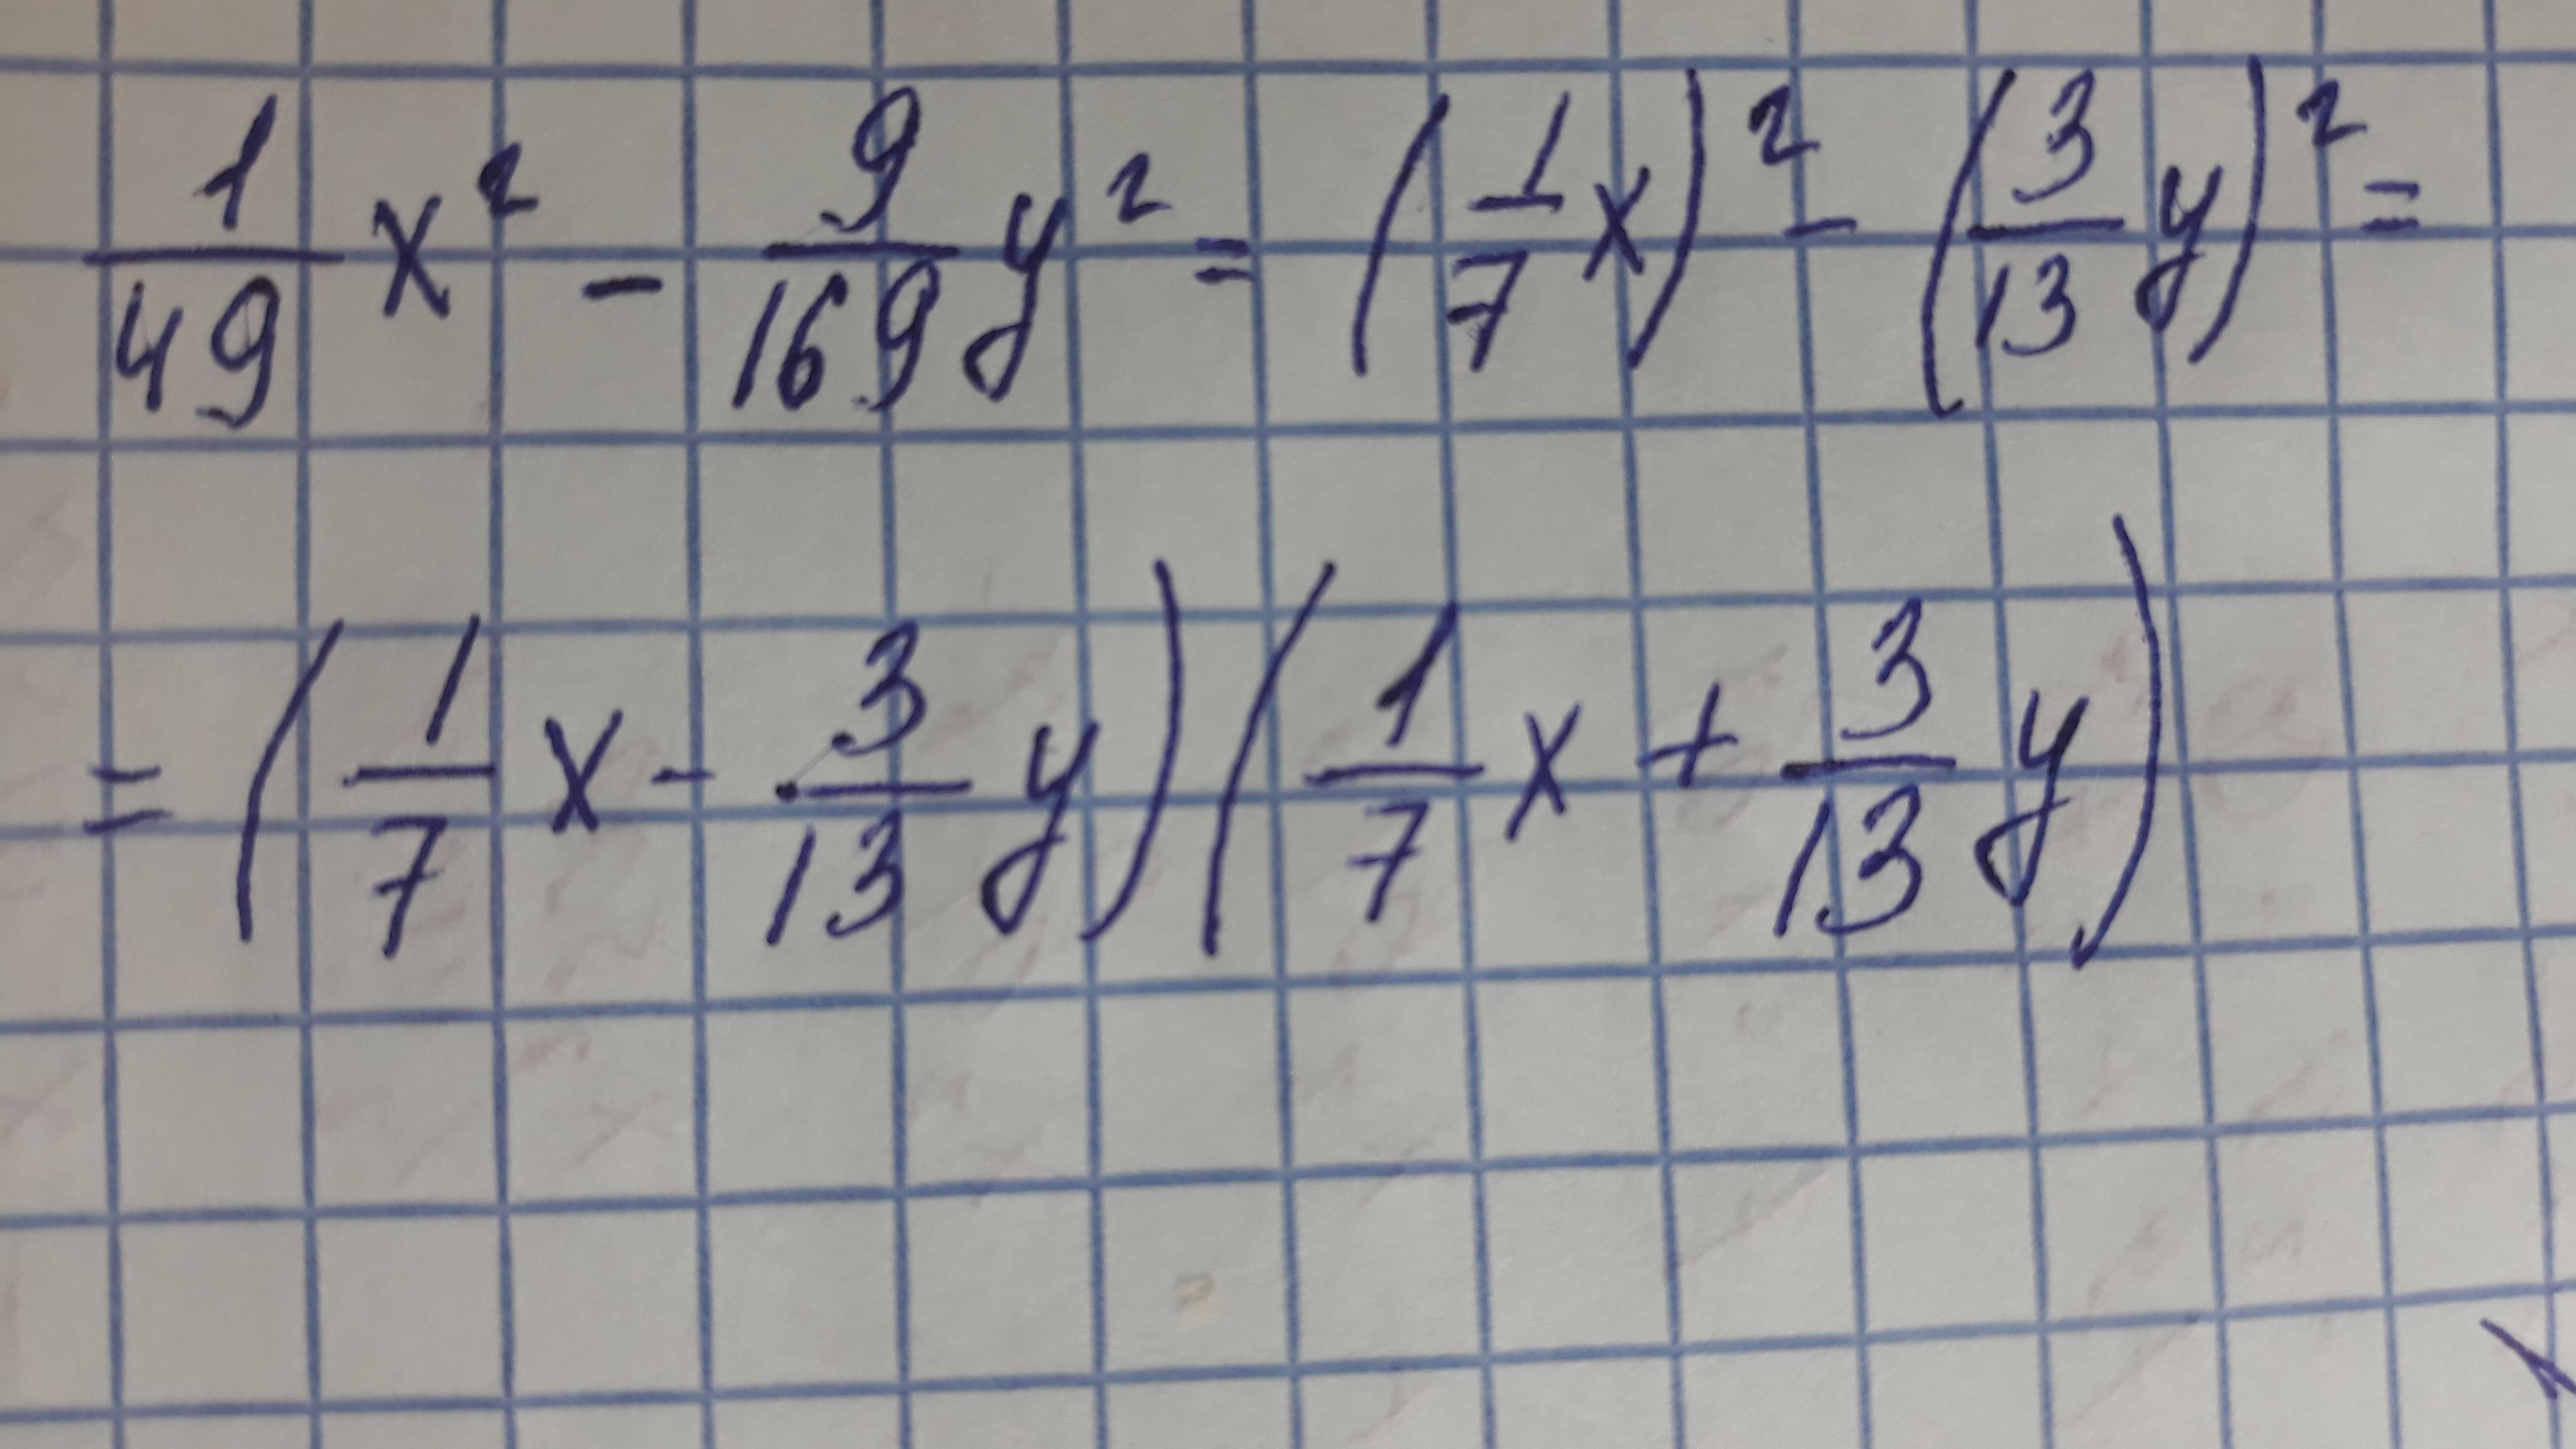 1/49 x² - 9/169 y² = (1/7 x)² - (3/13 y)² =
= (1/7 x - 3/13 y)(1/7 x + 3/13 y)